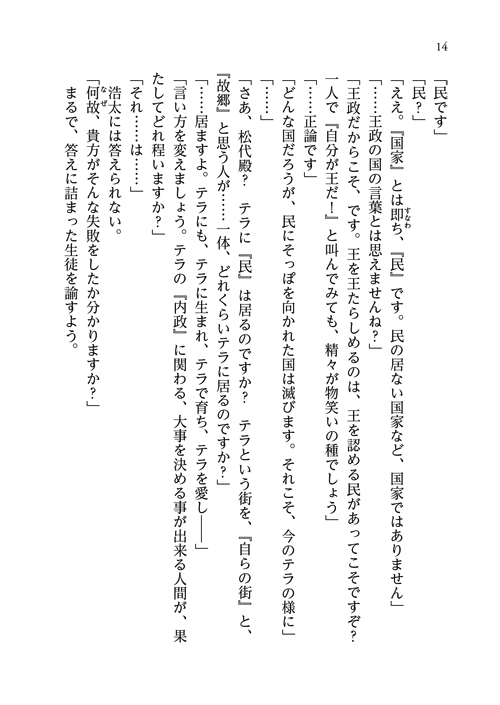 14
「民です」
「民？」
「ええ。『国家』とは即ち、『民』です。民の居ない国家など、国家ではありません」
「……王政の国の言葉とは思えませんね？」
「王政だからこそ、です。王を王たらしめるのは、王を認める民があってこそですぞ？
一人で『自分が王だ！』と叫んでみても、精々が物笑いの種でしょう」
「……正論です」
「どんな国だろうが、民にそっぽを向かれた国は滅びます。それこそ、今のテラの様に」
「……」
「さあ、松代殿？　テラに『民』は居るのですか？　テラという街を、『自らの街』と、
『故郷』と思う人が……一体、どれくらいテラに居るのですか？」
「……居ますよ。テラにも、テラに生まれ、テラで育ち、テラを愛し――」
「言い方を変えましょう。テラの『内政』に関わる、大事を決める事が出来る人間が、果
たしてどれ程いますか？」
「それ……は……」
浩太には答えられない。
「何故、貴方がそんな失敗をしたか分かりますか？」
まるで、答えに詰まった生徒を諭すよう。
すなわ
なぜ